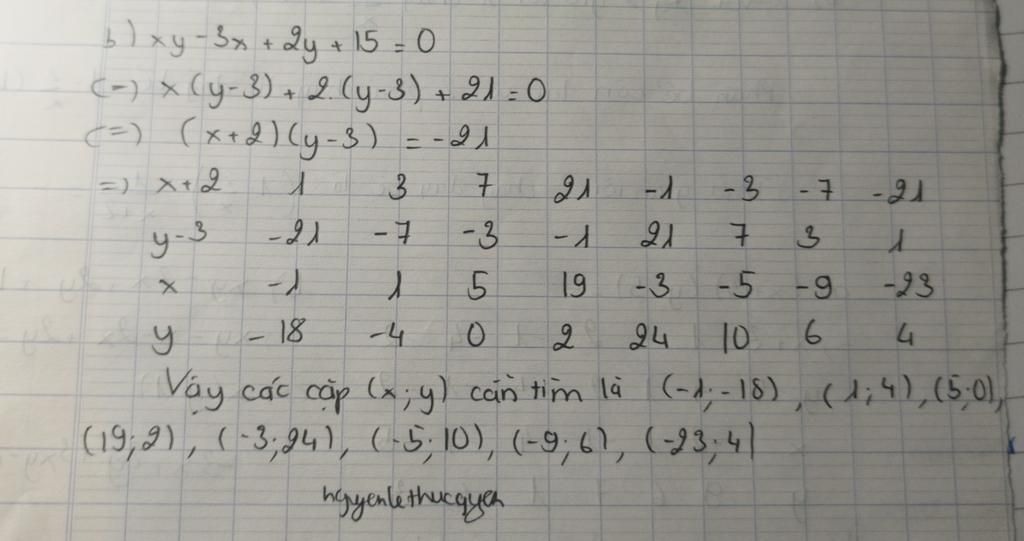 b) xy - 3x + 2y + 15 = 0
(=) x (y-3) + 2.(y-3) + 21 = 0
(=) (x+2)(y-3) = -21
=) x+2 1 3 7 21 -1 -3 -7 -21
y-3 -21 -7 -3 -1 21 7 3 1
x -1 1 5 19 -3 -5 -9 -23
y -18 -4 0 2 24 10 6 4
Vậy các cặp (x;y) cần tìm là (-1;-18), (1;4), (5;0),
(19;2), (-3;24), (-5;10), (-9;6), (-23;4)
nguyenlethucquyen